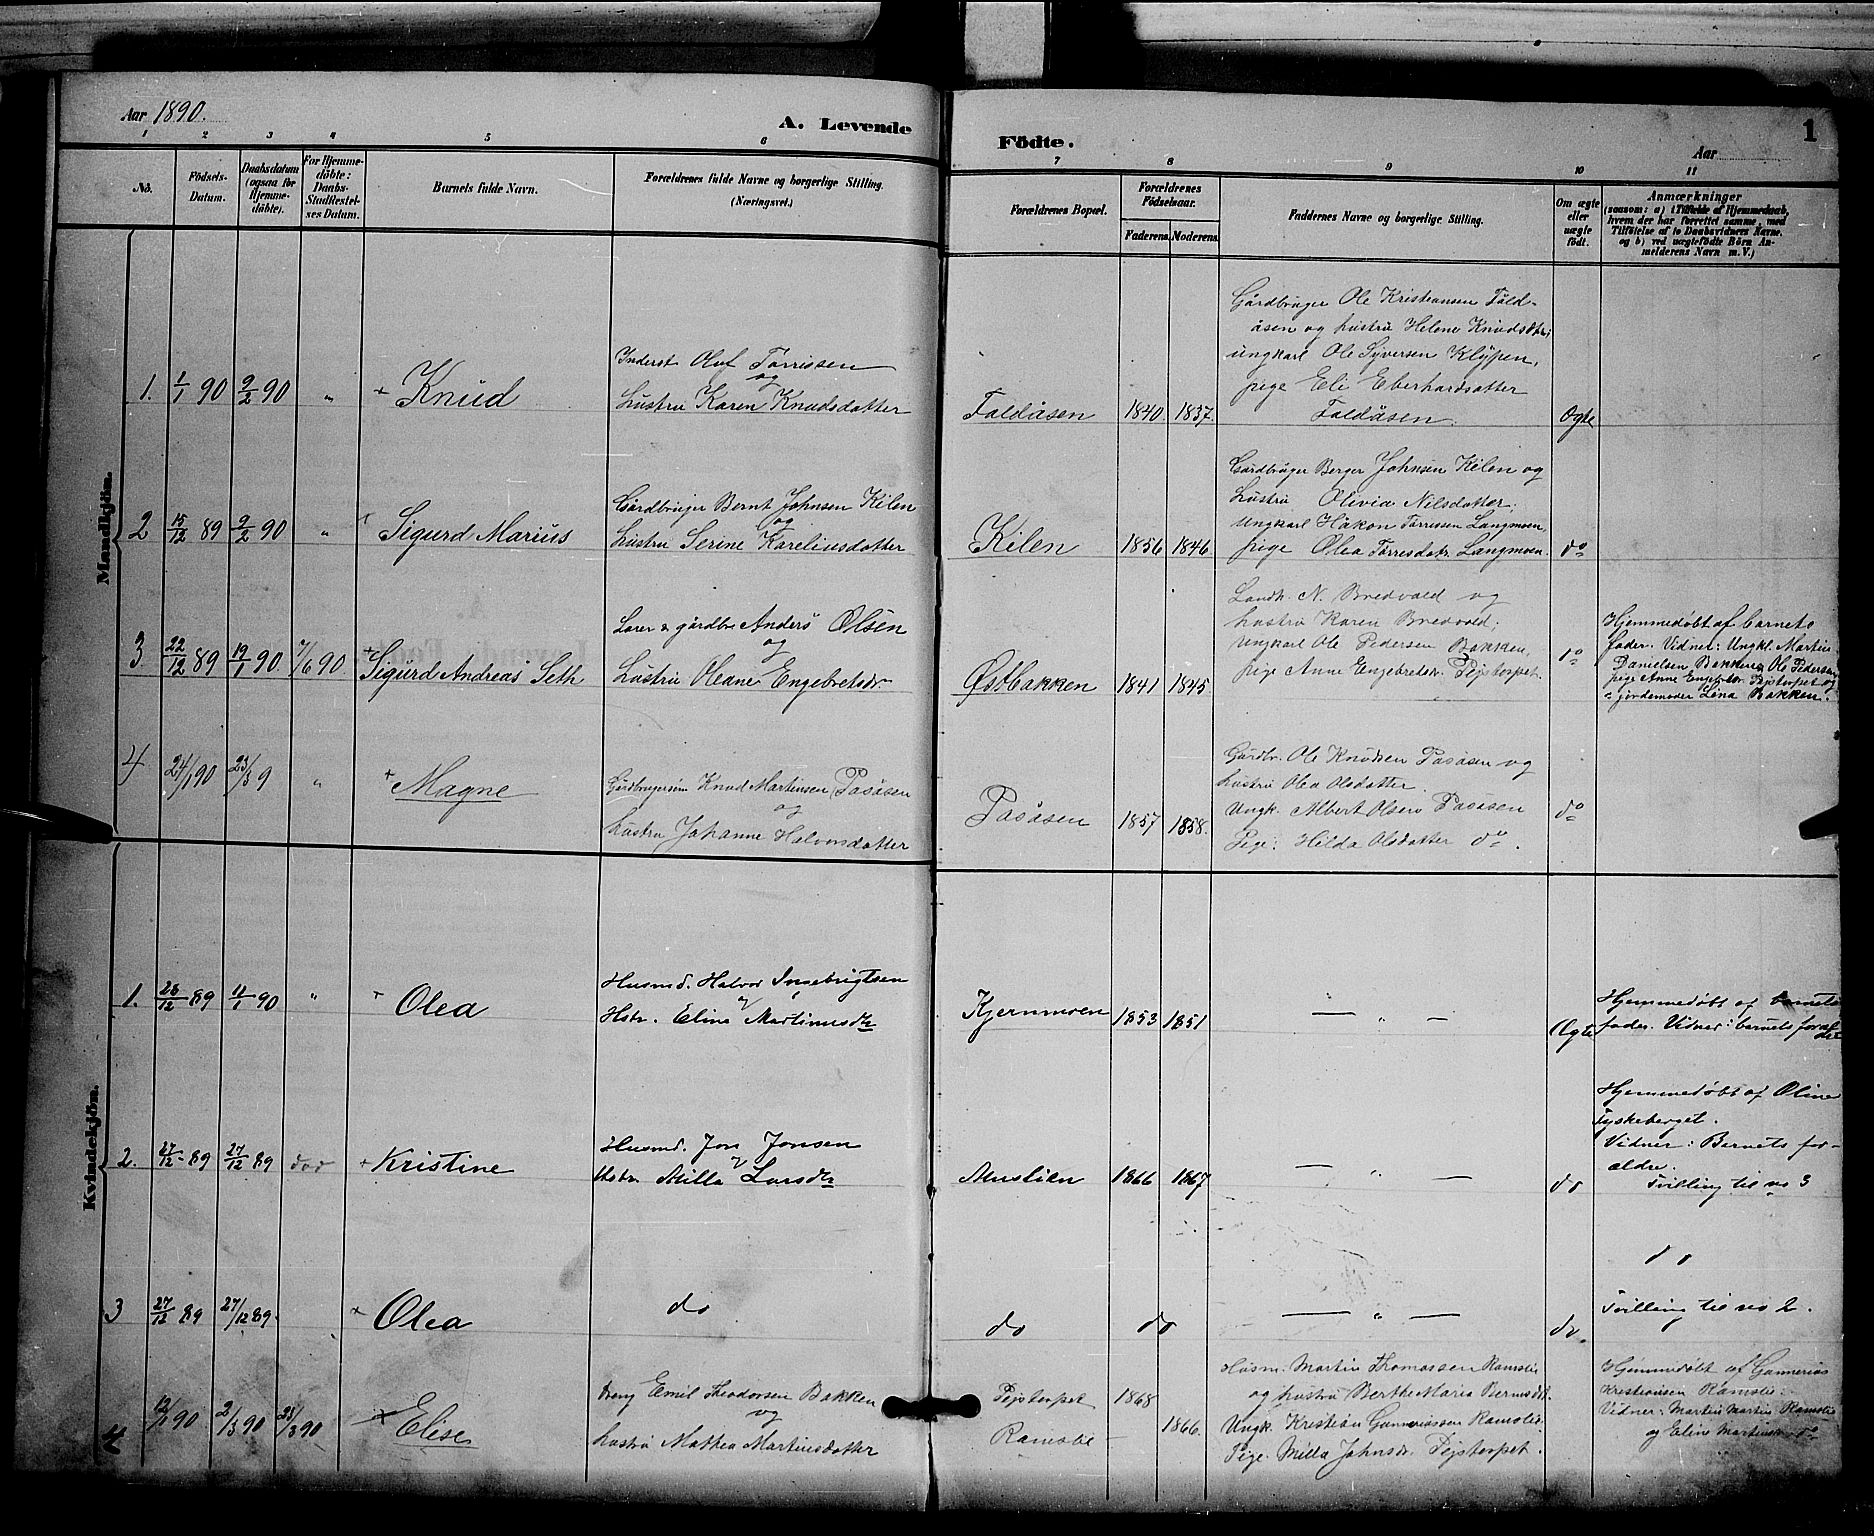 Aar 1890.
A. Levende Födte.
Aar
1
1 2 3 4 5 6 7 8 9 10 11
No.
Födsels-Datum.
Daabsdatum (ogsaa for Hjemme-döbte).
For Hjemme-döbte: Daabs-Stadfæstel-ses Datum.
Barnets fulde Navn.
Forældrenes fulde Navne og borgerlige Stilling. (Næringsvei.)
Forældrenes Bopæl.
Forældrenes Födselsaar.
Faderens. Moderens.
Faddernes Navne og borgerlige Stilling.
Om ægte eller uægte födt.
Anmærkninger
(saasom: a) i Tilfælde af Hjemmedaab,
hvem der har forrettet samme, med
Tilföielse af to Daabsvidners Navne,
og b) ved uægtefödte Börn An-
melderens Navn m. V.)
Mandkjön.
1. 1/1 90 9/2 90 " + Knud
Inderst Oluf Torrissen
og
hustru Karen Knudsdatter
Faldåsen 1840. 1837.
Gårdbruger Ole Kristiansen Fald-
åsen og hustru Helene Knudsdtr;
ungkarl Ole Syversen Klypen,
pige Eli Eberhardsatter
Faldåsen.
Ægte
2 15/12 89 9/2 90 " + Sigurd Marius
Gårdbruger Bernt Johnsen Kilen
og
hustru Serine Kareliusdatter
Kilen 1856 1846
Gårdbruger Berger Johnsen Kilen og
hustru Olivia Nilsdatter.
Ungkarl Håkon Torrissen Langmoen,
pige Olea Torresdatr. Langmoen.
do
3 22/12 89 19/1 90 7/6 90 + Sigurd Andreas Seth
Lærer & gårdbr Anders Olsen
og
hustru Oleane Engebretsdr
Østbakken 1841 1845
Landh. N. Bredvold og
hustru Karen Bredvold;
Ungkarl Ole Pedersen Bakken,
pige Anne Engebretsdr. Pejstorpet.
do
Hjemmedøbt af barnets
fader. Vidner: Ungkl. Martin
Danielsen Bakken, Ole Pedersen,
pige Anne Engebrtdr. Pejstorpet og
jordemoder Lina Bakken.
4 24/1 90 23/3 9 " + Magne
Gårdbrugersøn Knud Martinsen Pasåsen
og
hustru Johanne Halvorsdatter
Pasåsen 1857 1858.
Gårdbr. Ole Knudsen Pasåsen og
hustru Olea Olsdatter.
Ungk. Albert Olsen Pasåsen
Pige: Hilda Olsdatter do.
do
Kvindekjön.
1. 28/12 89 11/1 90 " + Olea
Husmd. Halvor Ingebrigtsen
og
Hstr. Eline Martinusdtr
Kjernmoen 1853 1851
— " —
Ægte
Hjemmedøbt af barnets
fader. Vidner: barnets foræl-
dre
2. 27/12 89 27/12 89 død + Kristine
Husmd. Jon Jonsen
og
Hstr. Milla Larsdtr
Mustien 1866 1867
— " —
do
Hjemmedøbt af Oline
Tyskeberget.
Vidner: Barnets for-
ældre.
Tvilling til no 3
3 27/12 89 27/12 89. + Olea
do
do do
— " —
do.
do
Tvilling til no 2.
4 12/1 90 2/3 90 23/3 90 + Elise
Dreng Emil Theodorsen Bakken
og
hustru Mathea Martinsdatter
Pejstorpet 1868
Ramolie — 1866.
Husm. Martin Thomassen Ramolie
og hustru Berthe Maria Berntsdtr
Ungk. Kristian Gunneriussen Ramolie.
Pige. Milla Johnsdr. Pejstorpet.
Hjemmedøbt af Gunnerius
Kristiansen Ramolie.
Vidner: Martin Martins. Ramolie
og Eline Martinsdr. do